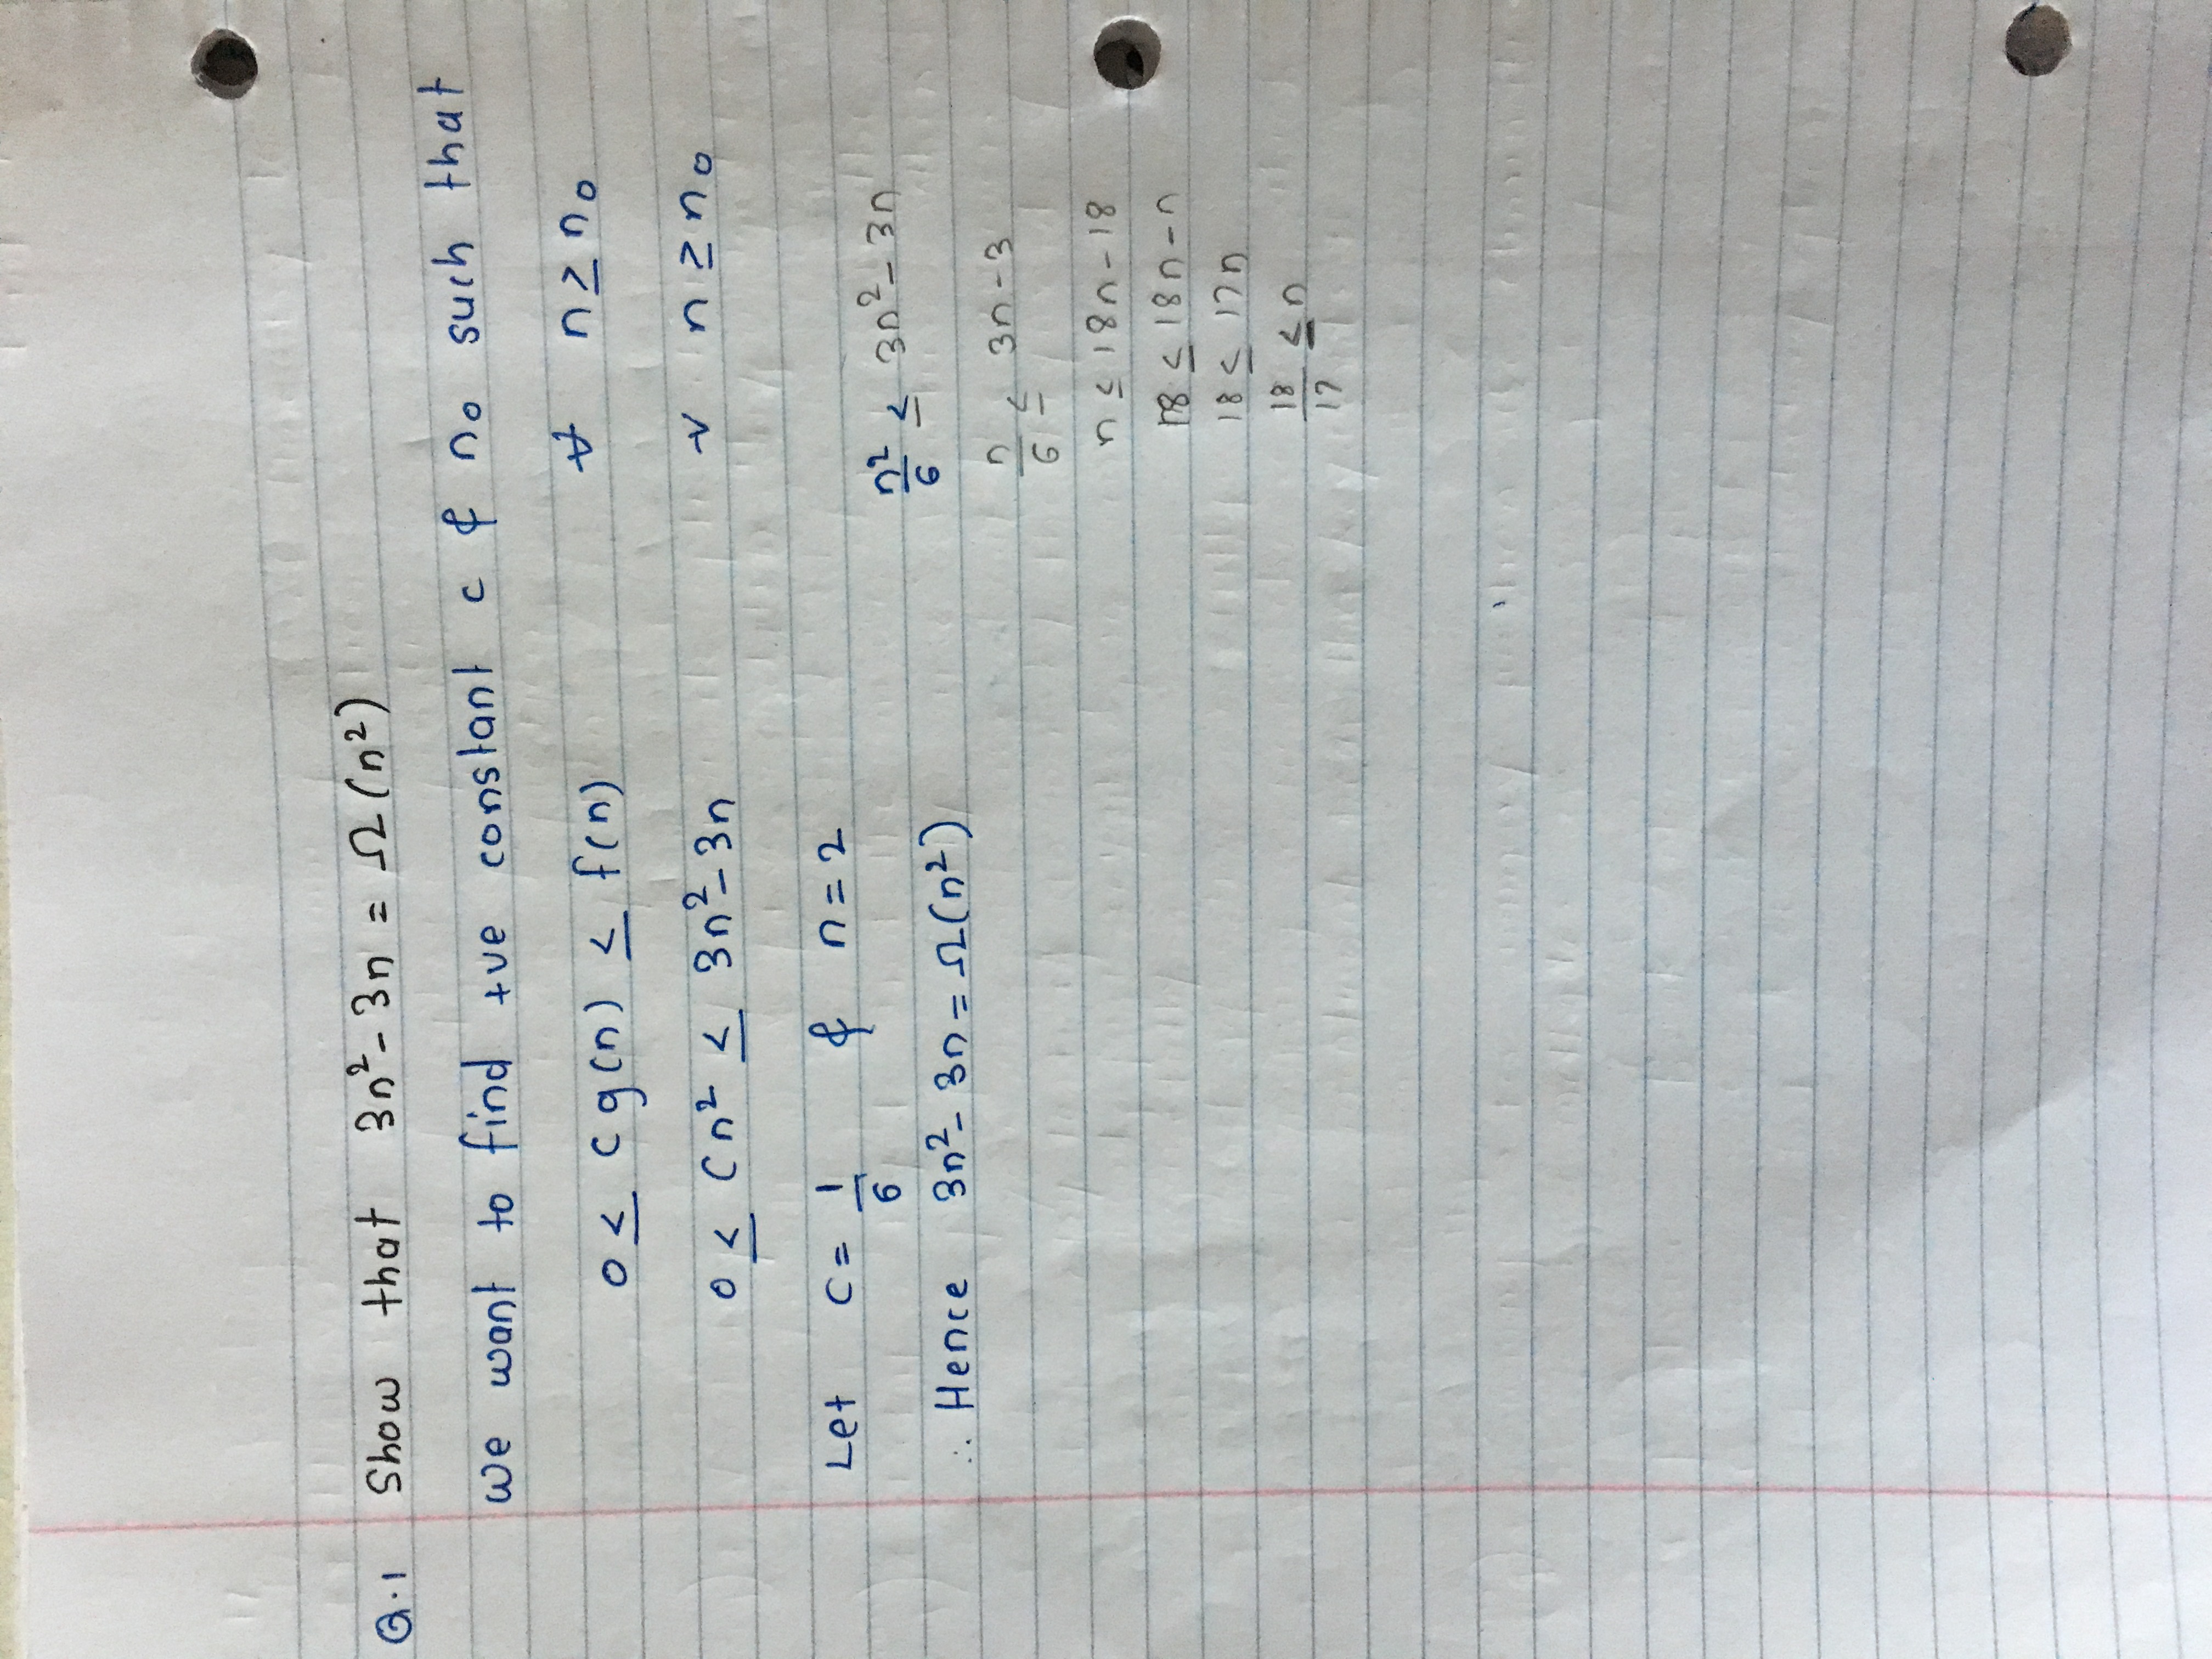 Q.1 Show that 3n² - 3n = Ω(n²)
we want to find +ve constant c & n₀ such that
0 ≤ cg(n) ≤ f(n) ∀ n ≥ n₀
0 ≤ cn² ≤ 3n² - 3n ∀ n ≥ n₀
Let c = 1/6 & n = 2
∴ Hence 3n² - 3n = Ω(n²)
n²/6 ≤ 3n² - 3n
n/6 ≤ 3n - 3
n ≤ 18n - 18
18 ≤ 18n - n
18 ≤ 17n
18/17 ≤ n